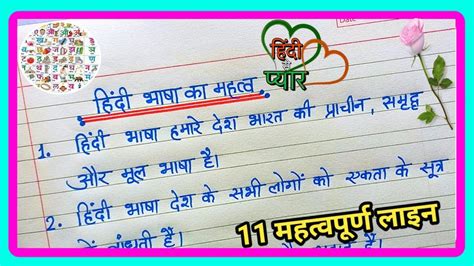 Date
हिंदी
से
प्यार
हिंदी भाषा का महत्व
1. हिंदी भाषा हमारे देश भारत की प्राचीन, समृद्ध
और मूल भाषा है।
2. हिंदी भाषा देश के सभी लोगों को एकता के सूत्र
में बांधती है।
11 महत्वपूर्ण लाइन